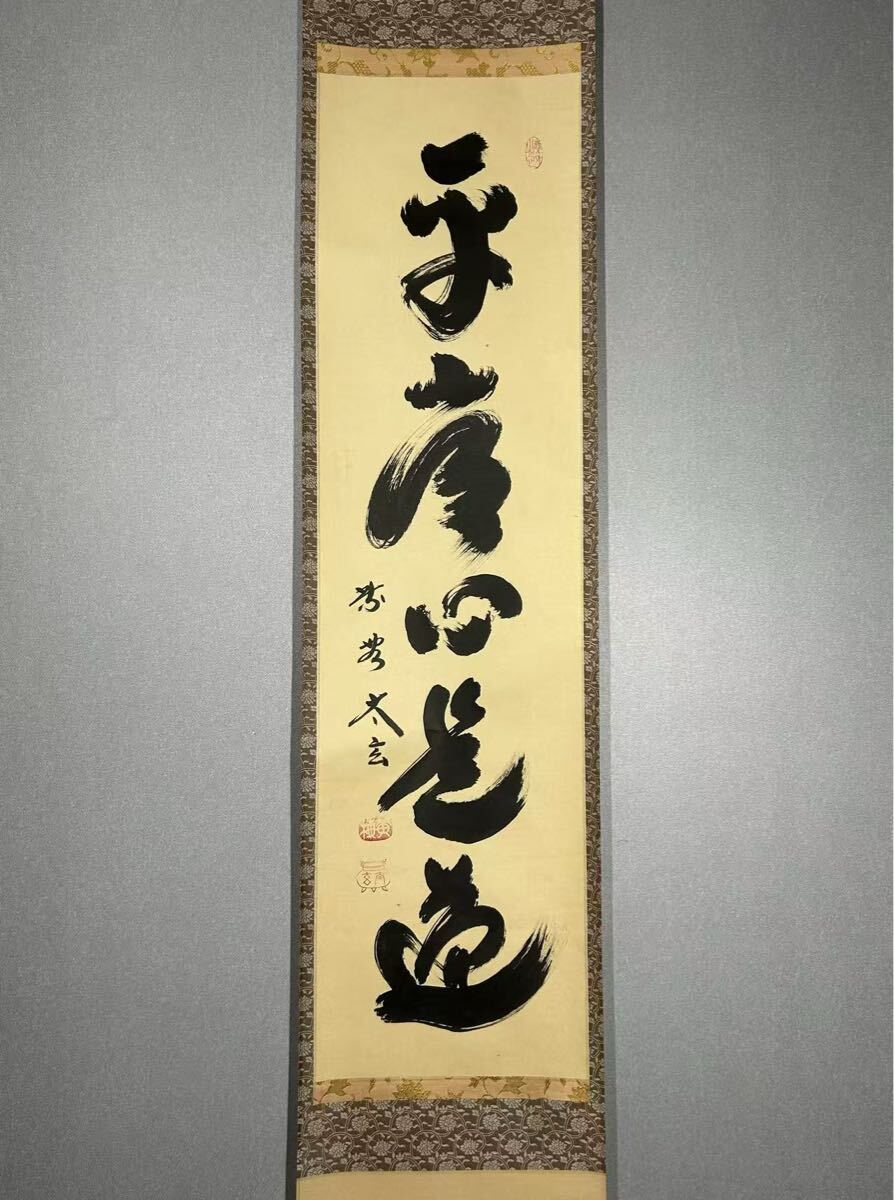 平常心是道
紫野太玄